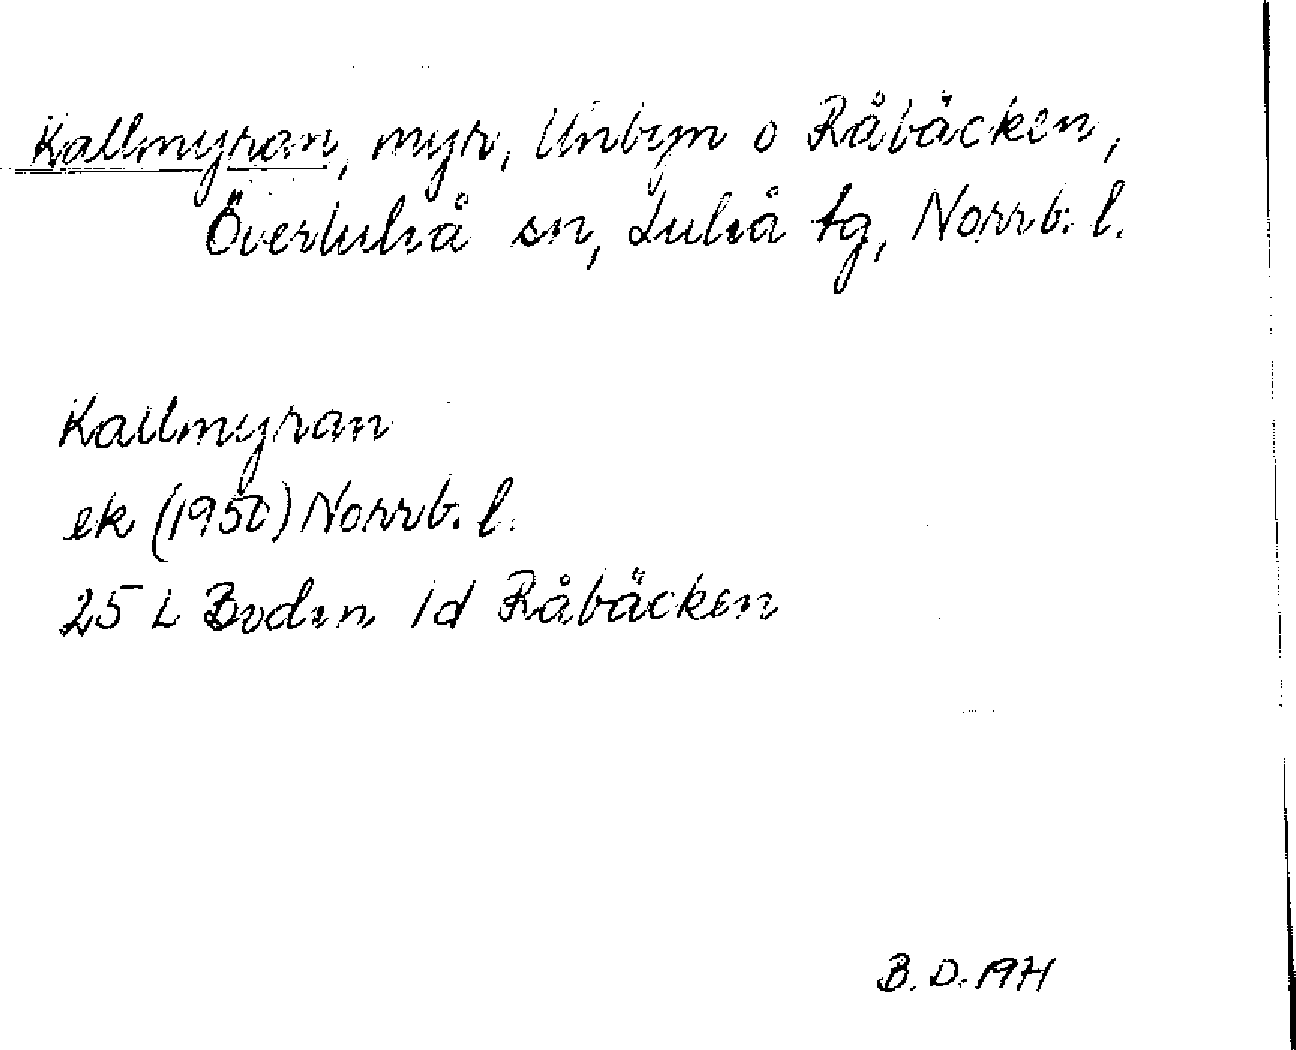 Kallmyran, myr, Unbyn o Råbäcken,
Överluleå sn, Luleå tg, Norrb. l.
Kallmyran
ek (1950) Norrb. l.
25 L Boden 1d Råbäcken
B. D. 1971